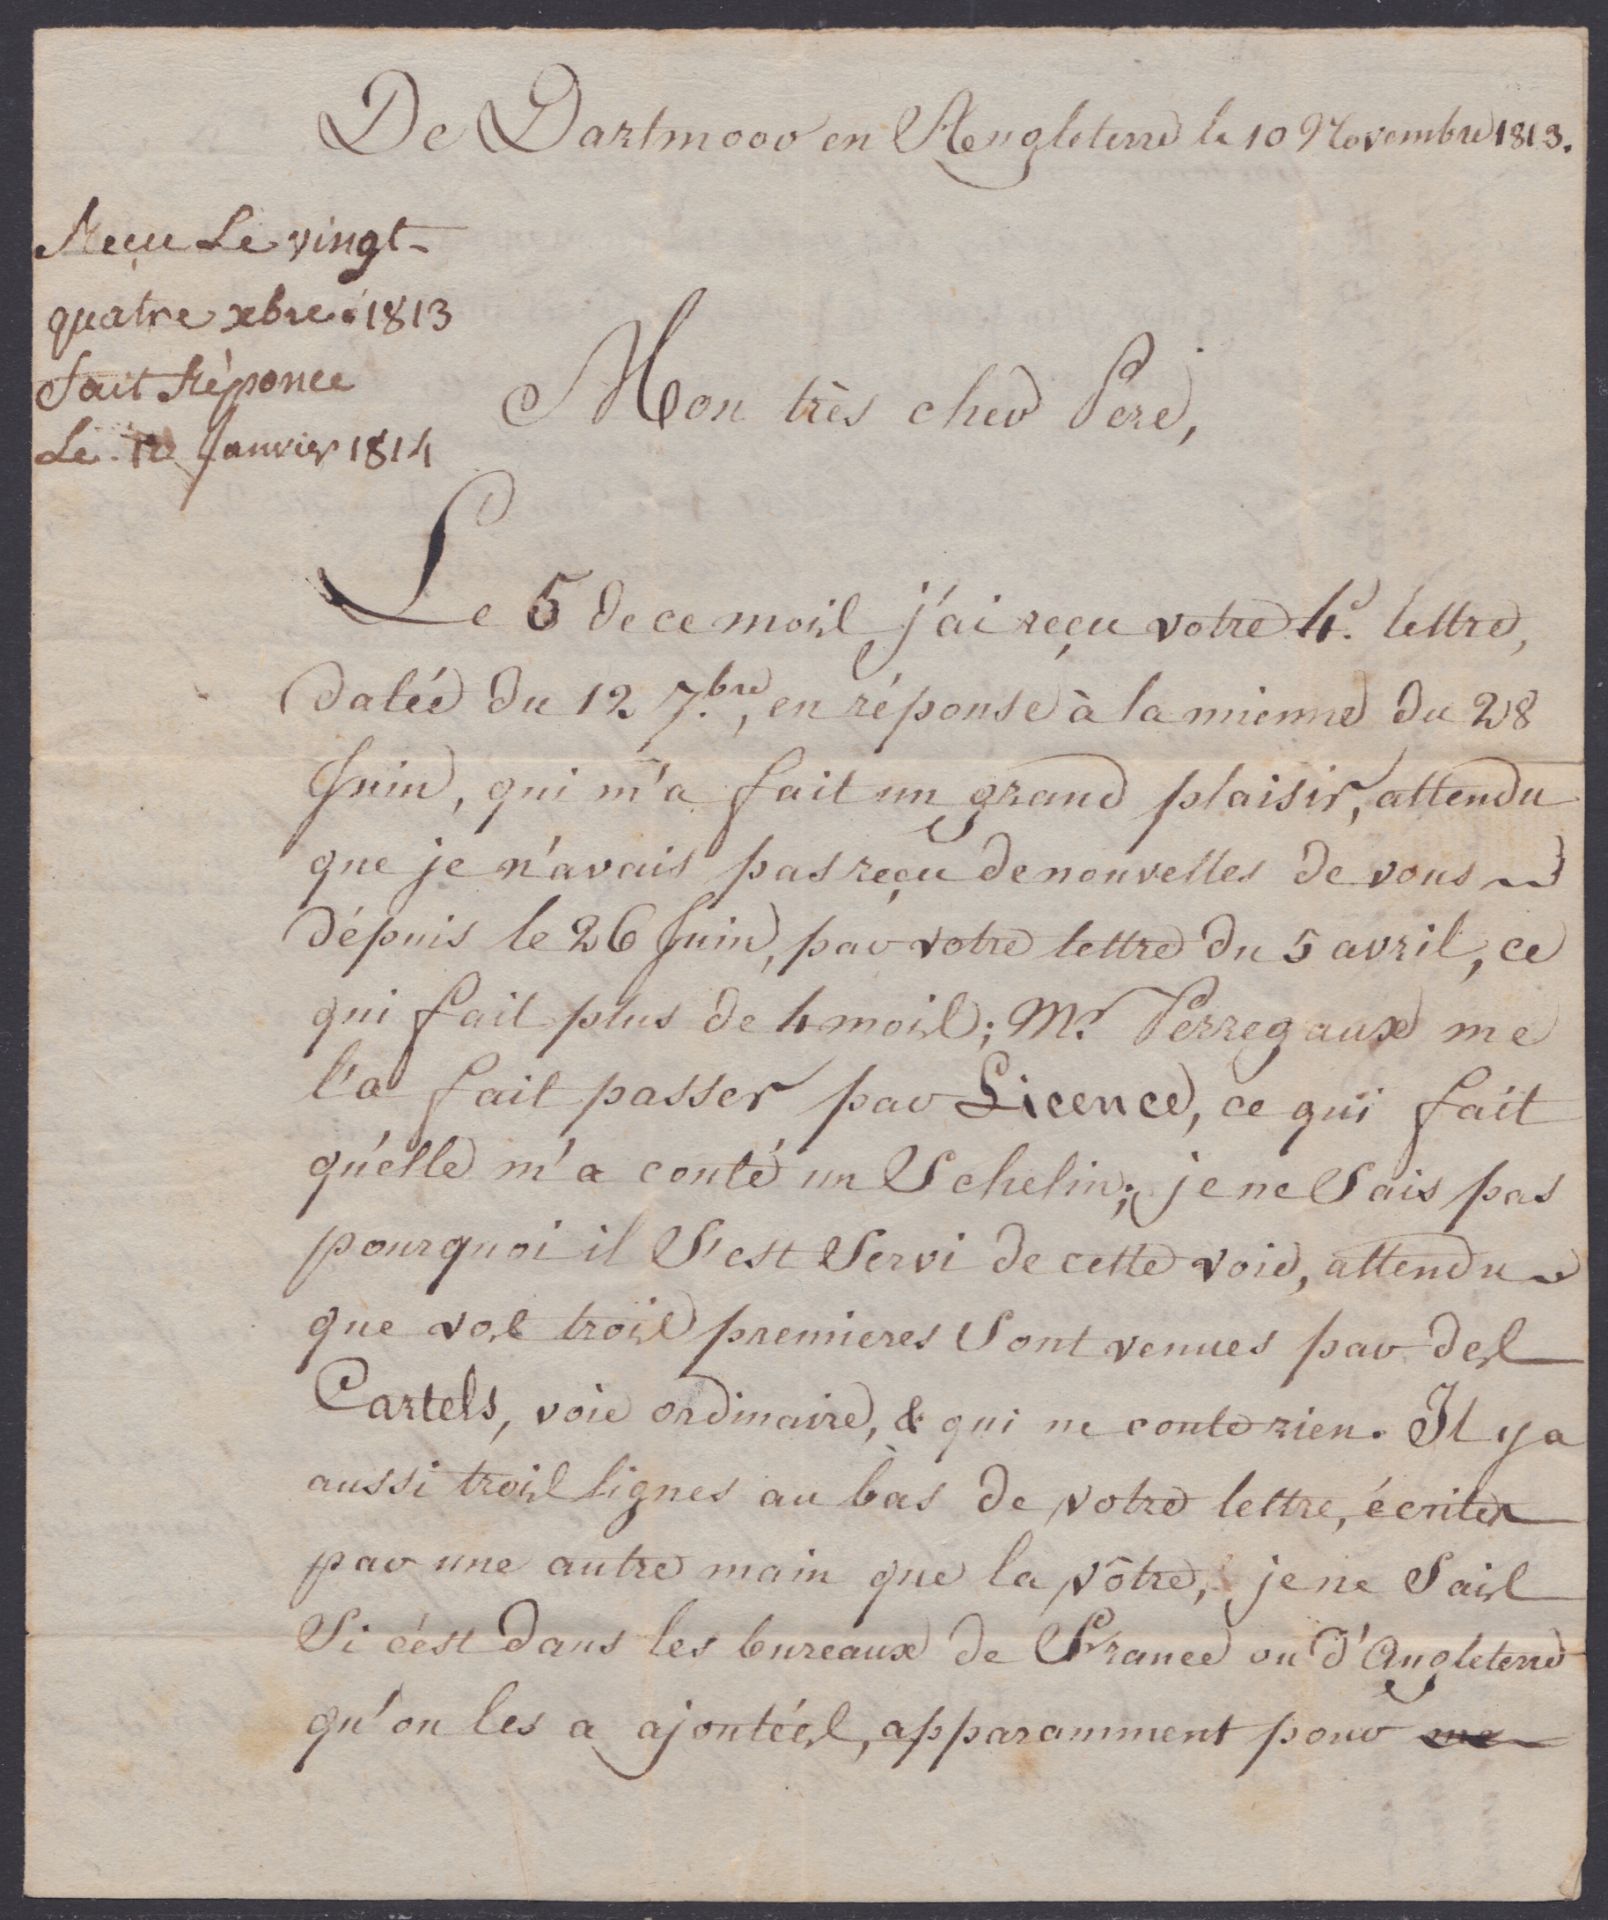 De Dartmoor en Angleterre le 10 Novembre 1813.
Reçu Le vingt-
quatre xbre 1813
fait Réponce
Le 12 Janvier 1814
Mon très cher Pere,
Le 5 de ce mois j'ai reçu votre 4e. lettre,
datée du 12 7.bre, en réponse à la mienne du 28
Juin, qui m'a fait un grand plaisir, attendu
que je n'avais pas reçu de nouvelles de vous
dépuis le 26 Juin, par votre lettre du 5 avril, ce
qui fait plus de 4 mois; Mr. Perregaux me
l'a fait passer par Licence, ce qui fait
qu'elle m'a couté un Schelin; je ne Sais pas
pourquoi il S'est Servi de cette voie, attendu
que vos trois premieres Sont venues par des
Cartels, voie ordinaire, & qui ne coute rien. Il y a
aussi trois lignes au bas de votre lettre, écrites
par une autre main que la vôtre, je ne Sais
Si c'est dans les bureaux de France ou d'Angleterre
qu'on les a ajoutées, apparamment pour me